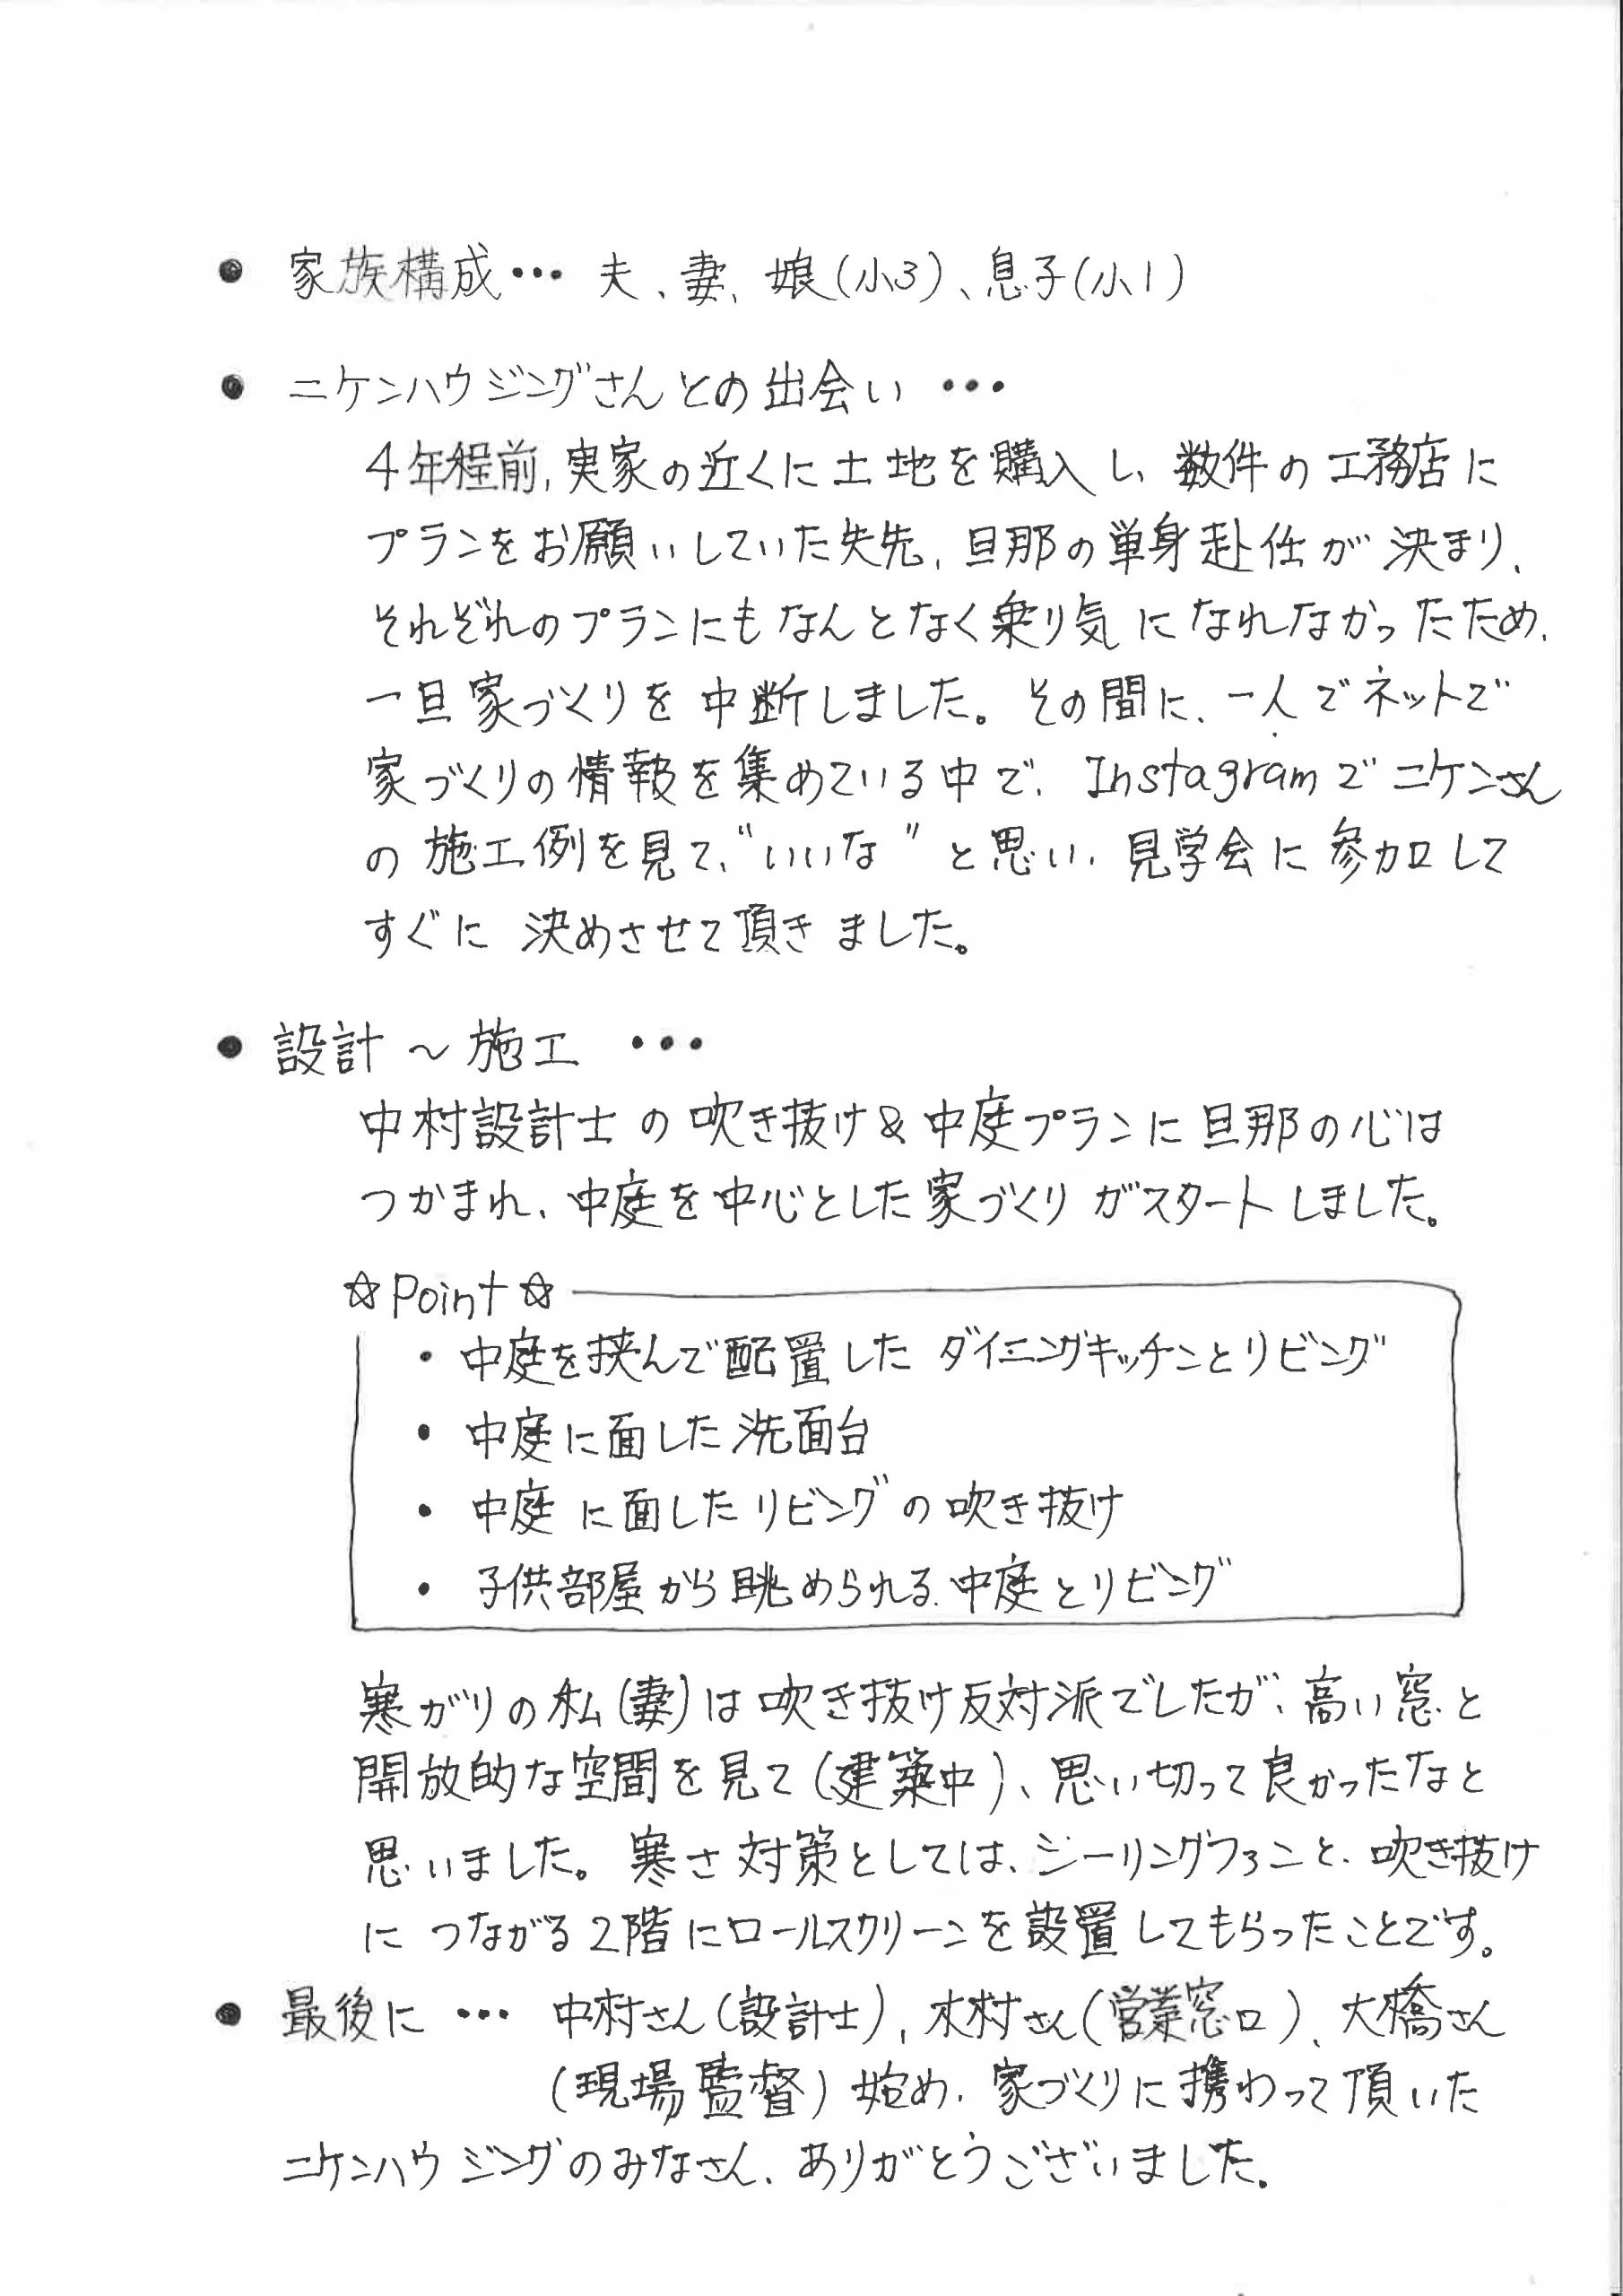 ● 家族構成… 夫、妻、娘(小3)、息子(小1)
● ニケンハウジングさんとの出会い …
4年程前、実家の近くに土地を購入し、数件の工務店に
プランをお願いしていた矢先、旦那の単身赴任が決まり、
それぞれのプランにもなんとなく乗り気になれなかったため、
一旦家づくりを中断しました。その間に、一人でネットで
家づくりの情報を集めている中で、Instagramでニケンさん
の施工例を見て、"いいな"と思い、見学会に参加して
すぐに決めさせて頂きました。
● 設計～施工 …
中村設計士の吹き抜け&中庭プランに旦那の心は
つかまれ、中庭を中心とした家づくりがスタートしました。
☆Point☆
・中庭を挟んで配置したダイニングキッチンとリビング
・中庭に面した洗面台
・中庭に面したリビングの吹き抜け
・子供部屋から眺められる中庭とリビング
寒がりの私(妻)は吹き抜け反対派でしたが、高い窓と
開放的な空間を見て(建築中)、思い切って良かったなと
思いました。寒さ対策としては、シーリングファンと、吹き抜け
につながる2階にロールスクリーンを設置してもらったことです。
● 最後に … 中村さん(設計士)、木村さん(営業窓口)、大橋さん
(現場監督)始め、家づくりに携わって頂いた
ニケンハウジングのみなさん、ありがとうございました。